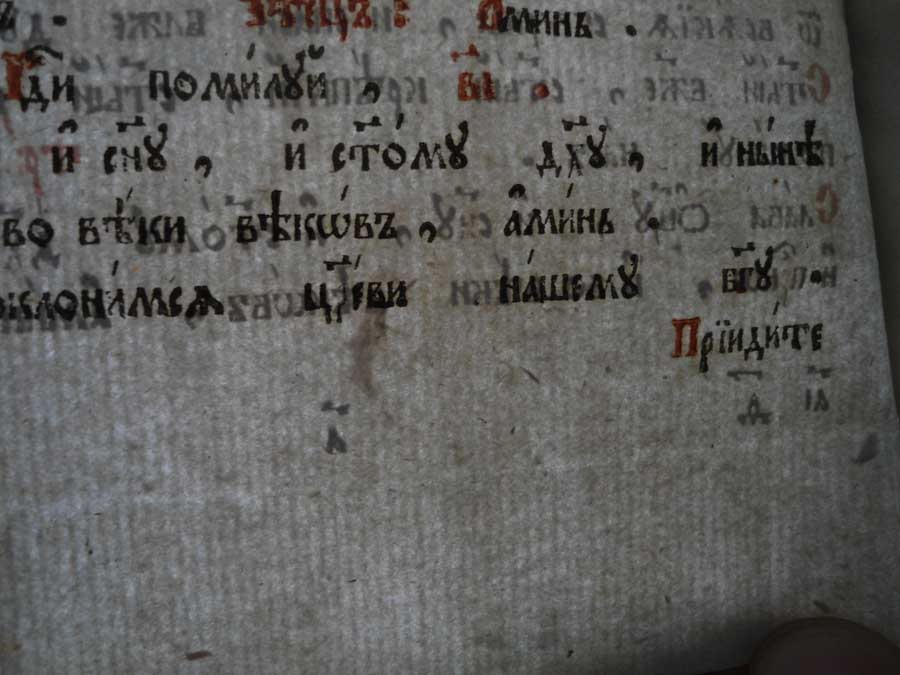 ъ. ... тецъ : Аминь .
Гди поми́лꙋй , в҃і .
и҆ сн҃ꙋ , и҆ ст҃о́мꙋ дх҃ꙋ , и҆ ны́нѣ
во вѣ́ки вѣкѡ́въ , а҆ми́нь .
оклони́мсѧ цр҃е́ви на́шемꙋ бг҃ꙋ .
Прїиди́те